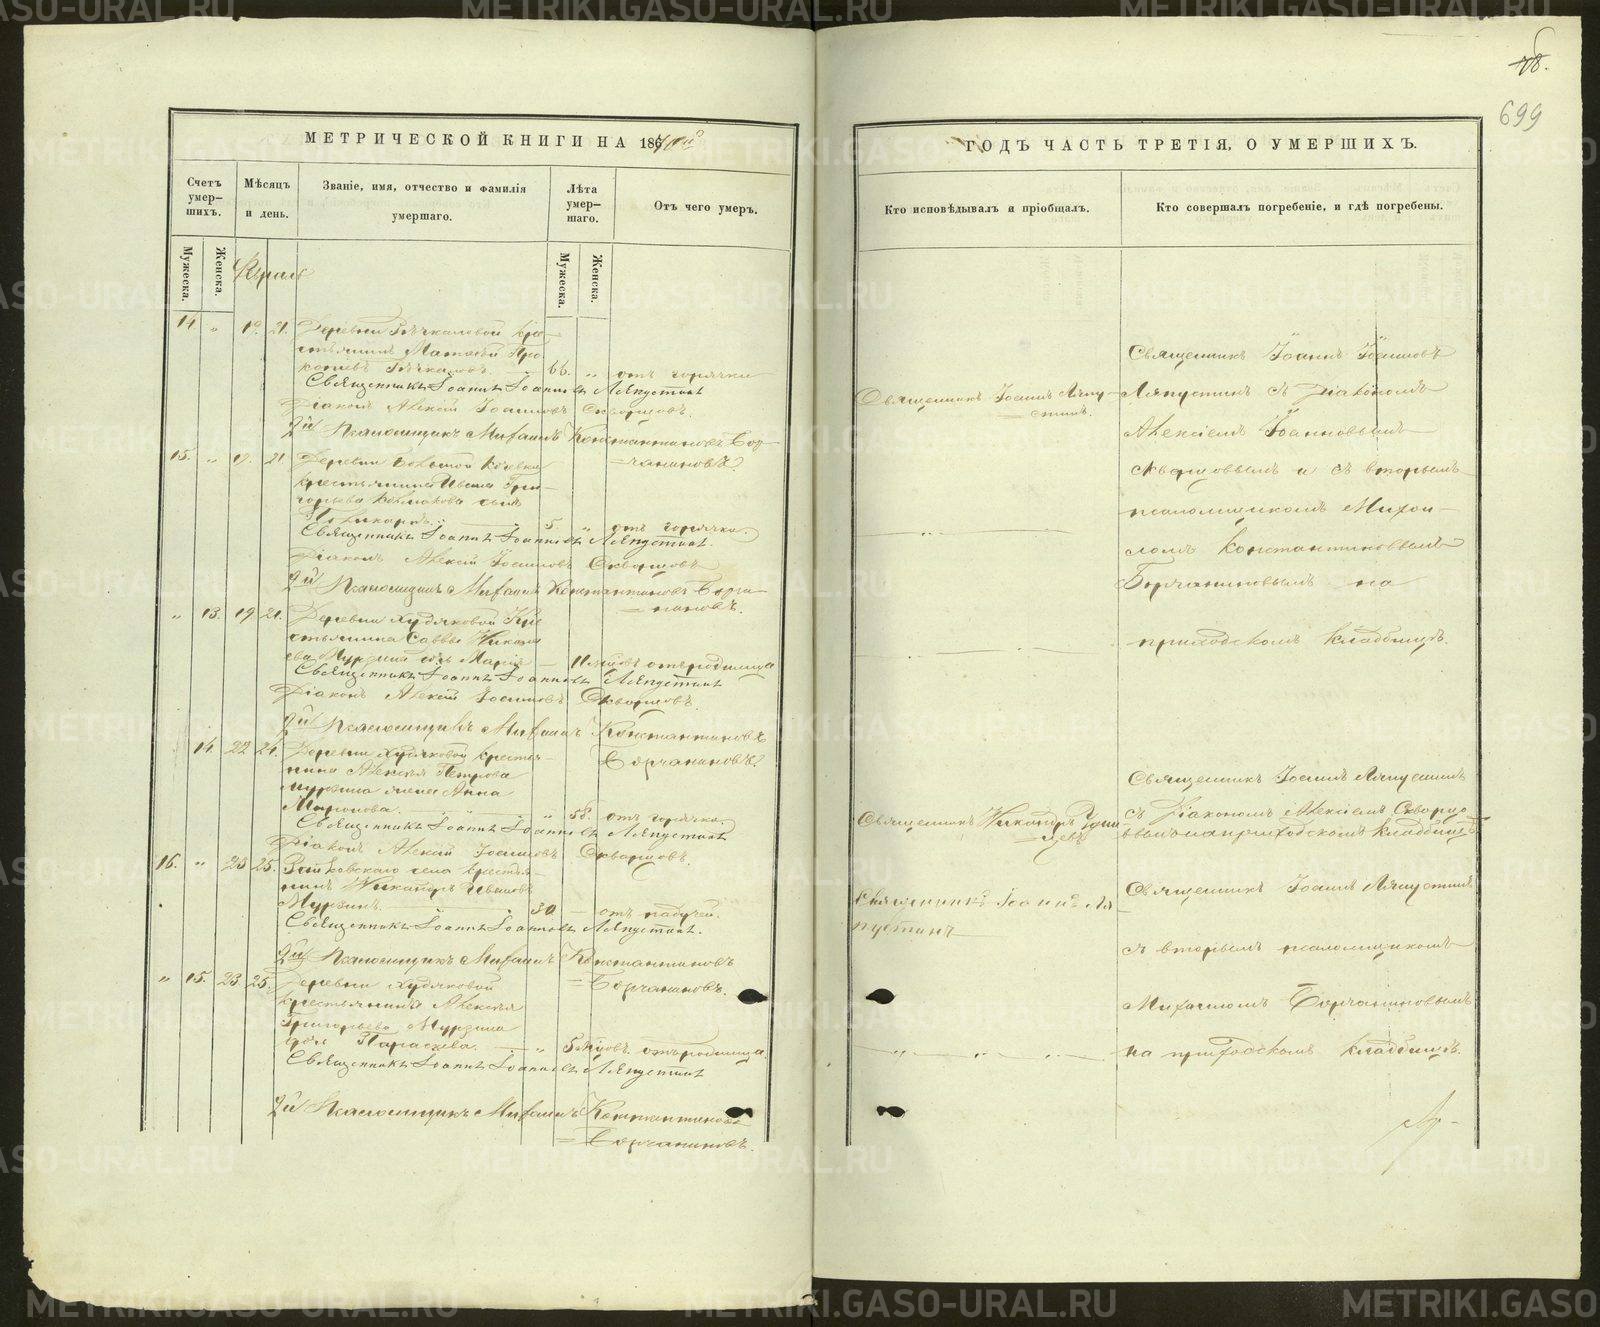 78.
699
МЕТРИЧЕСКОЙ КНИГИ НА 1870й
Счетъ умер-шихъ.
Мѣсяцъ и день.
Званіе, имя, отчество и фамилія умершаго.
Лѣта умер-шаго.
Отъ чего умеръ.
Мужеска.
Женска.
Мужеска.
Женска.
14. „ 19. 21. Деревни крестьянинъ
66. „ отъ горячки
Священникъ Іоаннъ Іоанновъ Ляпустинъ
Діаконъ Алексій Іоанновъ Скворцовъ.
2й Псаломщикъ Михаилъ Константиновъ Бор-
=чаниновъ.
15. „ 19. 21. Деревни
крестьянина Ивана Гри-
горьева сынъ
Поликарпъ 5 „ отъ горячки.
Священникъ Іоаннъ Іоанновъ Ляпустинъ.
Діаконъ Алексій Іоанновъ Скворцовъ
2й Псаломщикъ Михаилъ Константиновъ Борча-
=ниновъ.
„ 13. 19 21. Деревни Худяковой Кре
стьянина Саввы Никола
ева Мурзина дочь Марія — отъ родимца
Священникъ Іоаннъ Іоанновъ Ляпустинъ
Діаконъ Алексій Іоанновъ Скворцовъ.
2й Псаломщикъ Михаилъ Константиновъ
Борчаниновъ.
14. 22 24. Деревни Худяковой крестья-
нина Алексѣя Петрова
Мурзина жена Анна
58. отъ горячки.
Священникъ Іоаннъ Іоанновъ Ляпустинъ
Діаконъ Алексій Іоанновъ Скворцовъ.
16. „ 23 25. Зайковскаго села крестья-
нинъ Никандръ Ивановъ
Мурзинъ. 30 — отъ падучей.
Священникъ Іоаннъ Іоанновъ Ляпустинъ.
2й Псаломщикъ Михаилъ Константиновъ
=Борчаниновъ.
„ 15. 23. 25. Деревни Худяковой
крестьянина Алексѣя
Григорьева Мурзина
дочь Параскева. — „ 5 мѣсяцовъ. отъ родимца
Священникъ Іоаннъ Іоанновъ Ляпустинъ
2й Псаломщикъ Михаилъ Константиновъ
=Борчаниновъ.
ГОДЪ ЧАСТЬ ТРЕТІЯ, О УМЕРШИХЪ.
Кто исповѣдывалъ и пріобщалъ.
Кто совершалъ погребеніе, и гдѣ погребены.
Священникъ Іоаннъ Ляпу-
стинъ.
Священникъ Никандръ
Священникъ Іоаннъ Ля
пустинъ
Священникъ Іоаннъ Іоанновъ
Ляпустинъ съ Діакономъ
Алексіемъ Іоанновымъ
Скворцовымъ и съ вторымъ
псаломщикомъ Михаи-
ломъ Константиновымъ
Борчаниновымъ на
приходскомъ кладбищѣ.
Священникъ Іоаннъ Ляпустинъ
съ Діакономъ Алексіемъ Скворцо
вымъ на приходскомъ кладбищѣ
Священникъ Іоаннъ Ляпустинъ
съ вторымъ псаломщикомъ
Михаиломъ Борчаниновымъ
на приходскомъ кладбищѣ.
METRIKI.GASO-URAL.RU